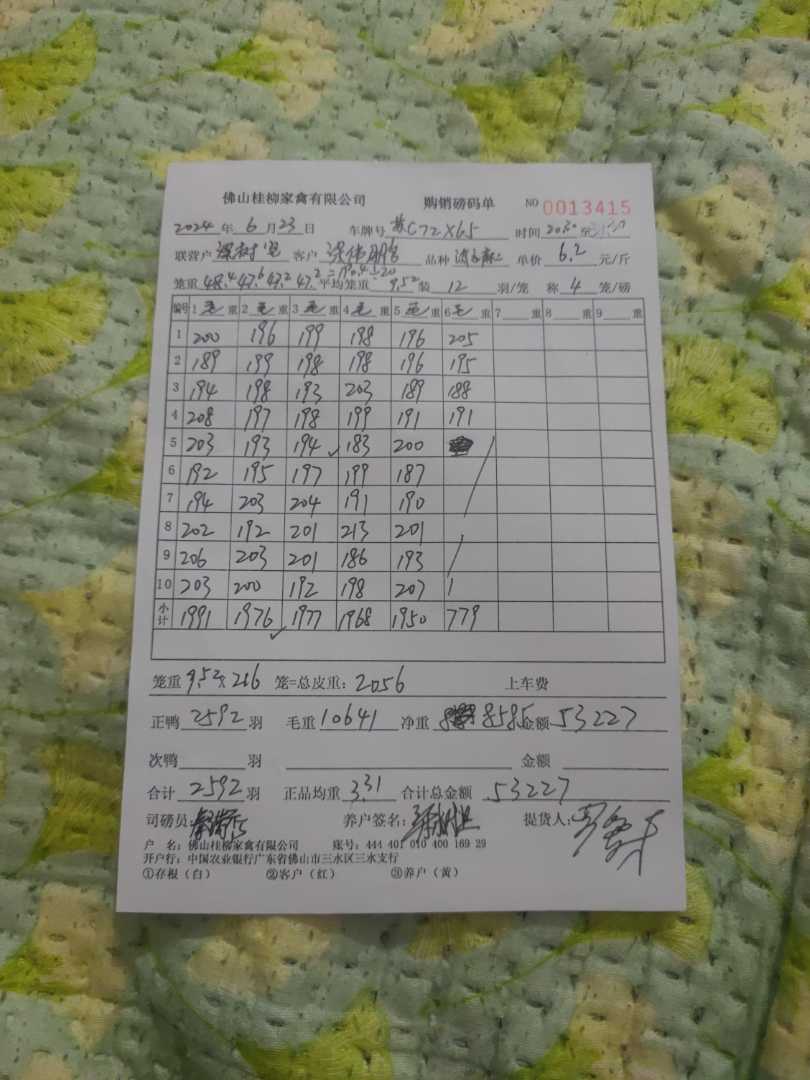 佛山桂柳家禽有限公司 购销磅码单 NO 0013415
2024年 6月23日 车牌号 C72X65 时间 2030至
联营户 客户 品种 单价 6.2 元/斤
笼重 48.4 47.6 47.2 47.2 =190.4÷20 平均笼重 9.52 装 12 羽/笼 称 4 笼/磅
编号 1毛重 2毛重 3毛重 4毛重 5毛重 6毛重 7 重 8 重 9 重
1 200 196 199 198 196 205
2 189 199 198 198 196 195
3 194 198 193 203 189 188
4 208 197 198 199 191 191
5 203 193 194 183 200
6 192 195 197 199 187
7 194 203 204 191 190
8 202 192 201 213 201
9 206 203 201 186 193
10 203 200 192 198 207
小计 1991 1976 1977 1968 1950 779
笼重 9.52x216 笼=总皮重: 2056 上车费
正鸭 2592 羽 毛重 10641 净重 8585 金额 53227
次鸭 羽 金额
合计 2592 羽 正品均重 3.31 合计总金额 53227
司磅员: 养户签名: 提货人:
户 名: 佛山桂柳家禽有限公司 账号: 444 401 010 400 169 29
开户行: 中国农业银行广东省佛山市三水区三水支行
①存根(白) ②客户(红) ③养户(黄)